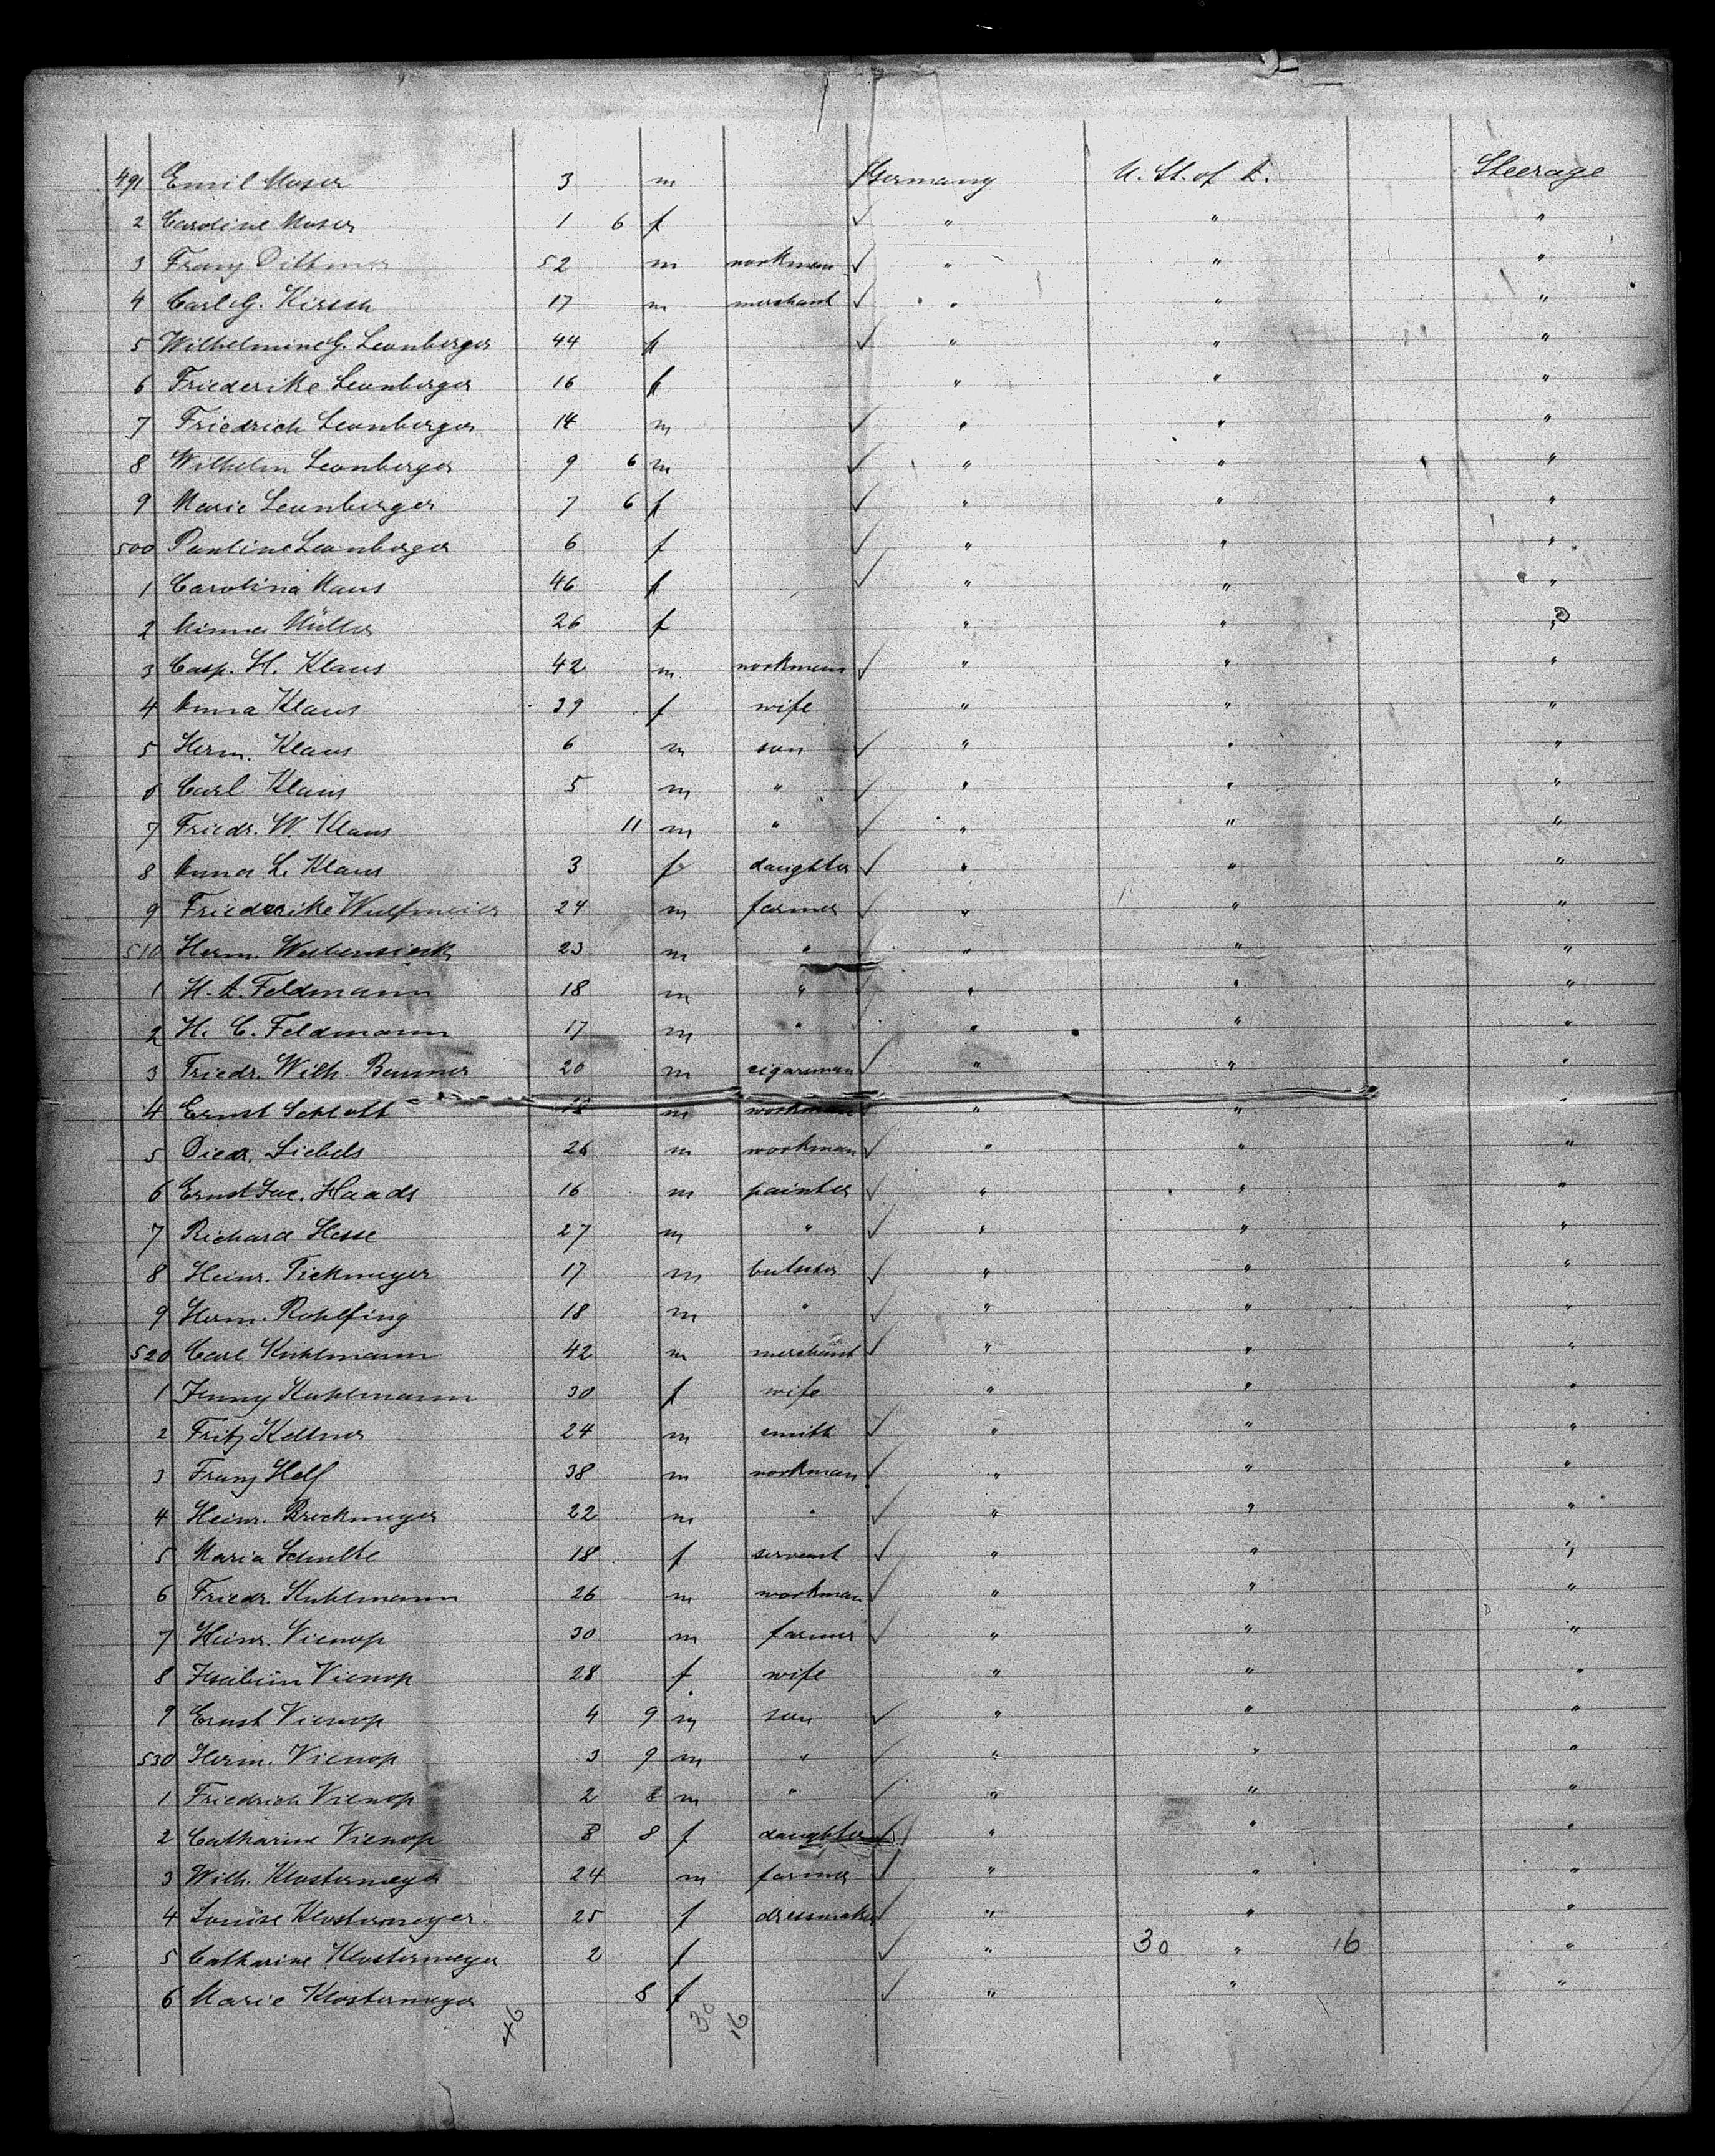 491 Emil Moser 3 m Germany U. St. of A. Steerage
2 Caroline Moser 1 6 f " " "
3 Franz Dittmer 52 m workman " " "
4 Carl G. Kirsch 17 m merchant " " "
5 Wilhelmine G. Leonberger 44 f " " "
6 Friederike Leonberger 16 f " " "
7 Friedrich Leonberger 14 m " " "
8 Wilhelm Leonberger 9 6 m " " "
9 Marie Leonberger 7 6 f " " "
500 Pauline Leonberger 6 f " " "
1 Carolina Maus 46 f " " "
2 Minna Müller 26 f " " "
3 Casp. H. Klaus 42 m workman " " "
4 Anna Klaus 39 f wife " " "
5 Herm. Klaus 6 m son " " "
6 Carl Klaus 5 m " " " "
7 Friedr. W. Klaus 11 m " " " "
8 Anna L. Klaus 3 f daughter " " "
9 Friederike Wulfmeier 24 m farmer " " "
510 Herm. 23 m " " " "
1 H. A. Feldmann 18 m " " " "
2 H. C. Feldmann 17 m " " " "
3 Friedr. Wilh. 20 m cigarman " " "
4 Ernst Schlott m workman " " "
5 Died. Siebels 26 m workman " " "
6 Ernst Jac. Haads 16 m painter " " "
7 Richard Hesse 27 m " " " "
8 Heinr. Pickmeyer 17 m butcher " " "
9 Herm. Rohlfing 18 m " " " "
520 Carl Kuhlmann 42 m merchant " " "
1 Jenny Kuhlmann 30 f wife " " "
2 Fritz Kellner 24 m smith " " "
3 Franz Helf 38 m workman " " "
4 Heinr. Brockmeyer 22 m " " " "
5 Maria Schulte 18 f servant " " "
6 Friedr. Kuhlmann 26 m workman " " "
7 Heinr. Vienop 30 m farmer " " "
8 Vienop 28 f wife " " "
9 Ernst Vienop 4 9 m son " " "
530 Herm. Vienop 3 9 m " " " "
1 Friedrich Vienop 2 8 m " " " "
2 Catharine Vienop 8 f daughter " " "
3 Wilh. Klostermeyer 24 m farmer " " "
4 Louise Klostermeyer 25 f dressmaker " " "
5 Catharine Klostermeyer 2 f " 30 " 16 "
6 Marie Klostermeyer 8 f " " "
46 30 16